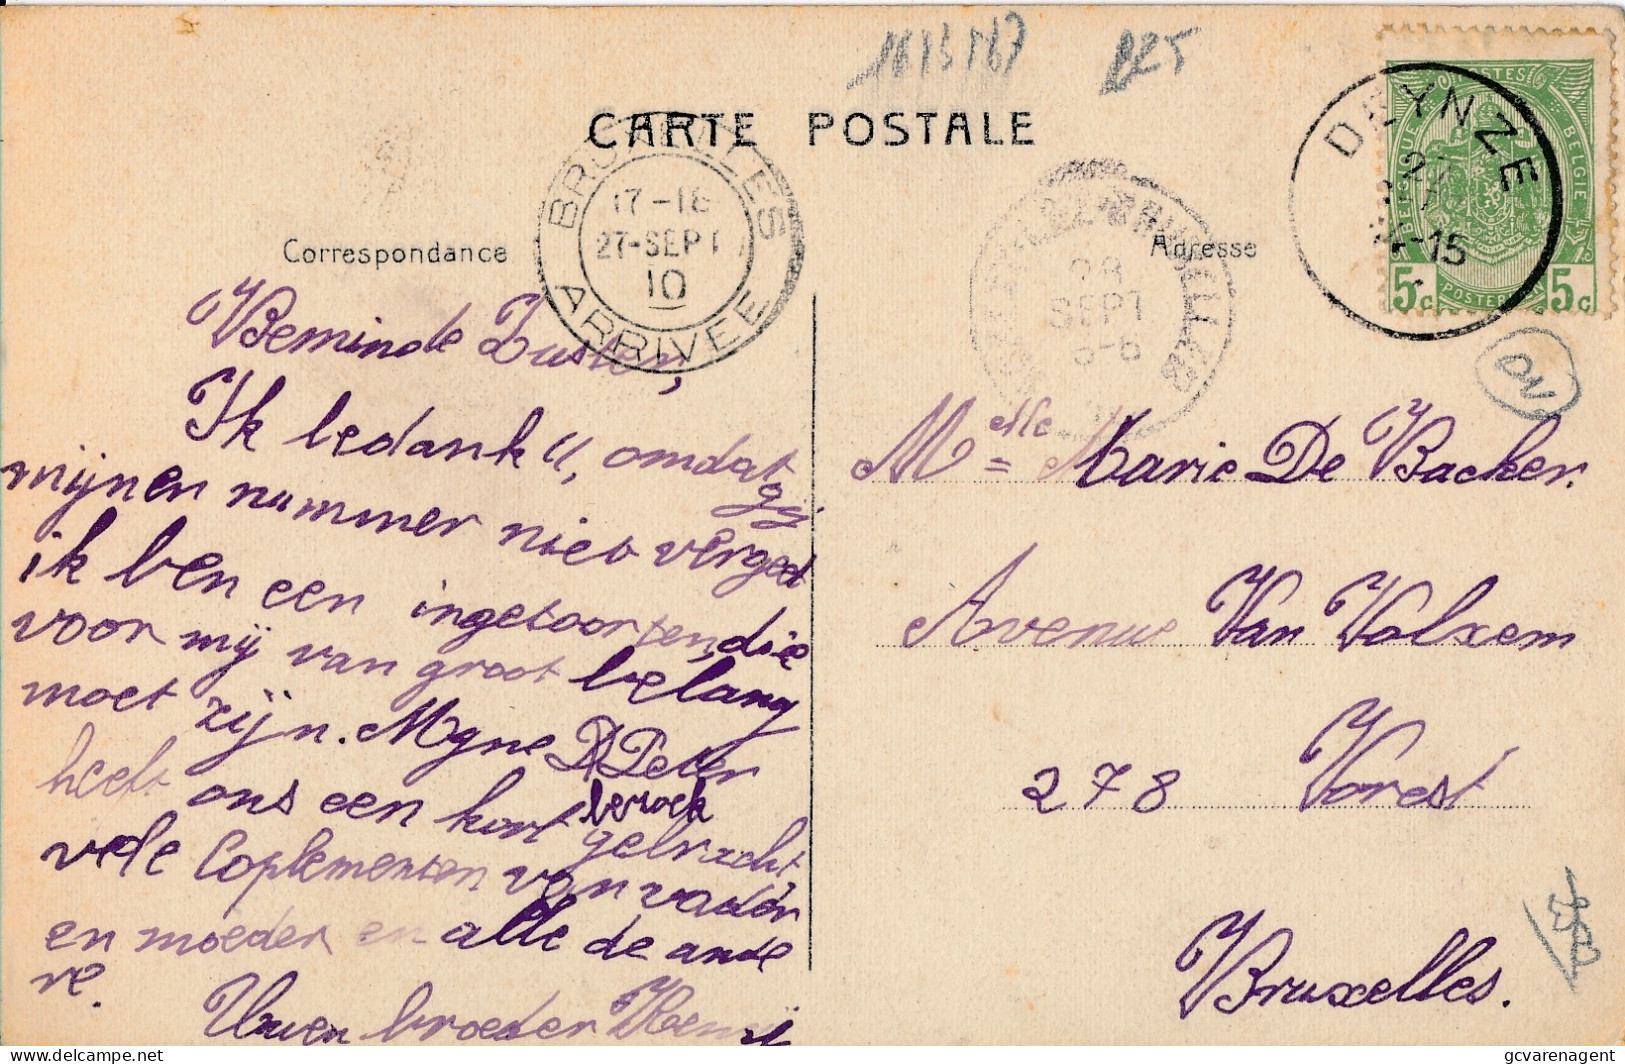 CARTE POSTALE
Correspondance
Adresse
BRUXELLES
17-18
27-SEPT
10
ARRIVEE
BRUXELLES
28
SEPT
DEYNZE
27
15
POSTES
BELGIQUE
BELGIE
POSTERIJEN
5c
5c
DN
B25
Beminde Zuster,
Ik bedank u, omdat
gij
mijnen nummer niet verget
ik ben een ingetoorten, die
voor mij van groot belang
moet zijn. Myne Peter
heeft ons een kort bezoek
gebracht
vele Coplementen van vader
en moeder en alle de ande
re.
Uwen broeder Henri
Melle = Marie De Backer.
Avenue Van Volxem
278 Vorest
Bruxelles.
gcvarenagent
delcampe.net